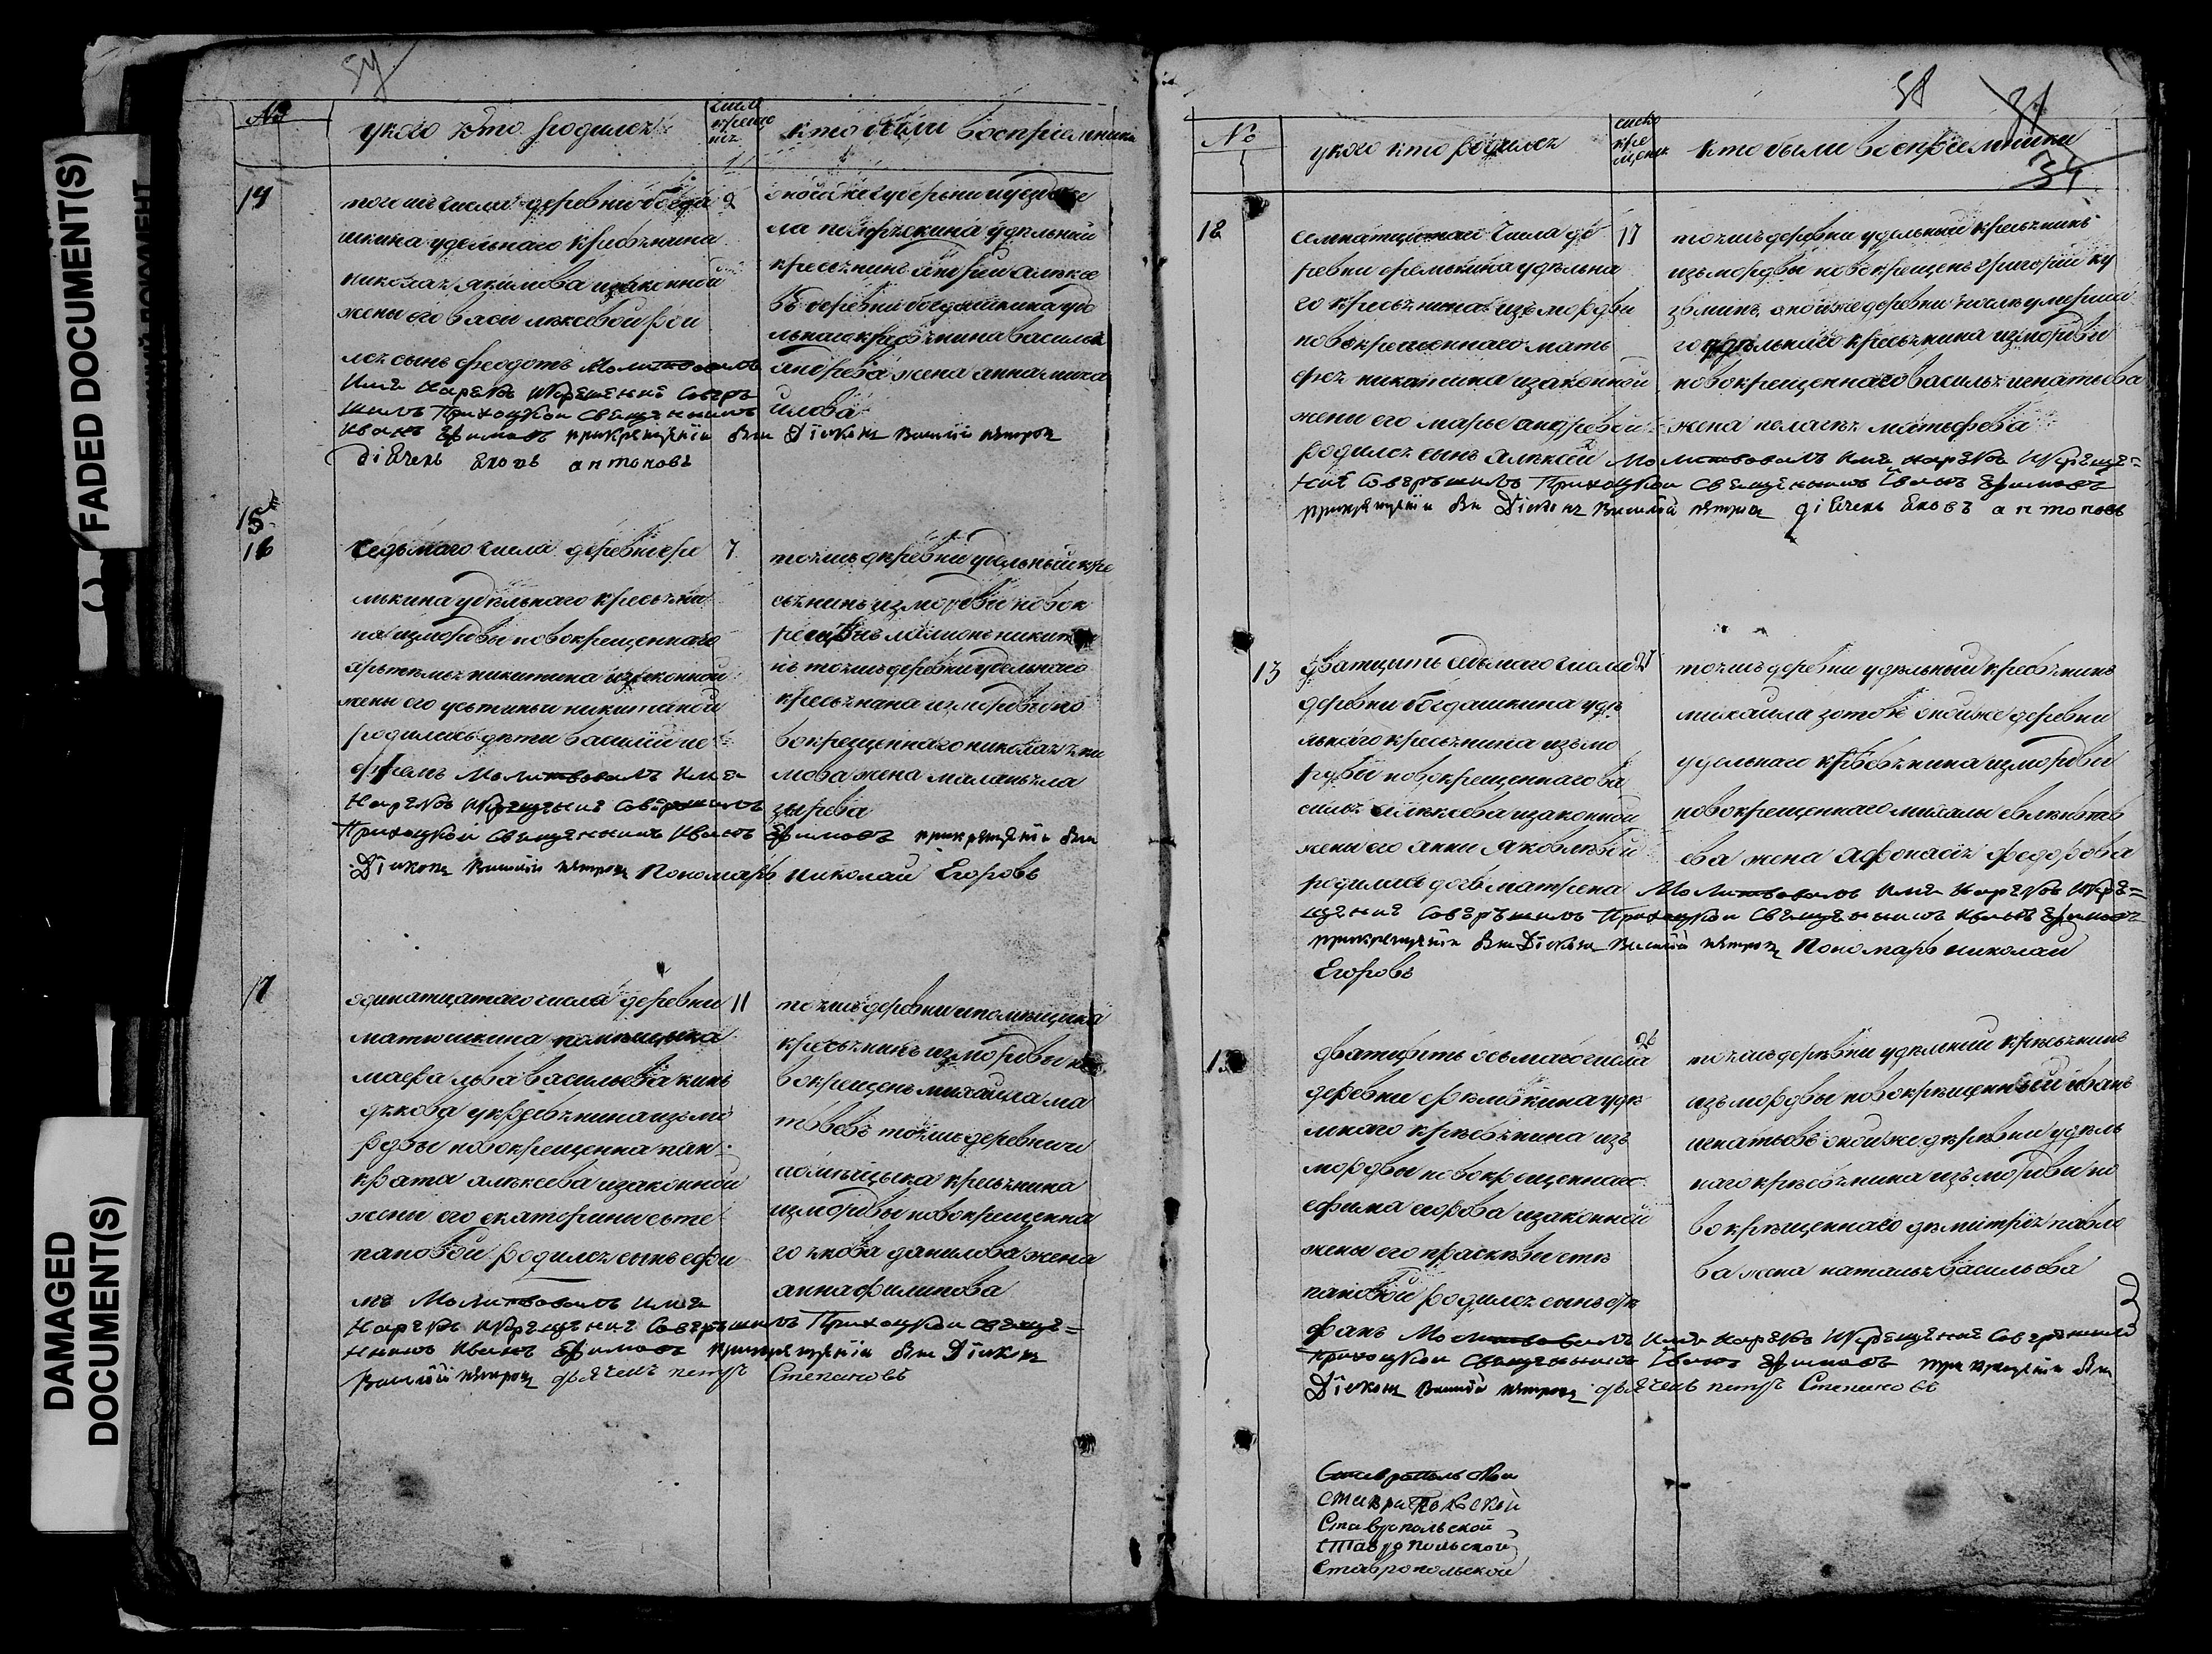 ( ) FADED DOCUMENT(S)
DAMAGED
DOCUMENT(S)
№
у кого кто родился
числ
креще
нія
кто были восприемники
14
деревни богда
2
шкина удельнаго кресьянина
николая якимова и законной
жены его васильевой ро
ся сынъ феодотъ Молитвовалъ
Имя Нарѣкъ И Крещение Совер
шилъ Приходкой Священникъ
Иванъ Ефимовъ при крещении был Діаконъ Василій Петров
діечекъ Яковъ антоновъ
оной же губерни и уезда се
ла удѣльный
кресянинъ андрей алексе
въ деревни богдашкина уде
льнаго кресянина василья
андреева жена анна миха
илова
15
16
седьмаго числа деревни ере
7
мькина удѣльнаго кресьяни
на из мордвы новокрещеннаго
артемья никитина и законной
жены его устиньи никитиной
родились дети василий и е
фремъ Молитвовалъ Имя
Нарѣкъ И Крещение Совершилъ
Приходкой Священникъ Иванъ Ефимовъ при крещении был
Діаконъ Василій Петров Пономарь Николай Егоровъ
тояжъ деревни удельный кре
сьянинъ из мордвы новок
рещенъ никити
нъ тояжъ деревни удельнаго
кресьянина из мордвы но
вокрещеннаго николая яки
мова жена маланья ла
зырева
17
одинатцатаго числа деревни
11
матюшкина помещика
маера льва васильева
у кресьянина из мо
рдвы новокрещенна пан
крата алексеева и законной
жены его екатерины сте
пановой родился сынъ ефи
мъ Молитвовалъ Имя
Нарѣкъ И Крещение Совершилъ Приходкой Свяще=
нникъ Иванъ Ефимовъ при крещении был Діаконъ
Василій Петров дьячекъ петръ Степановъ
тояжъ деревни помещика
кресьянинъ из мордвы но
вокрещенъ михаила ма
твеевъ тояжъ деревни
помещика кресьянина
из мордвы новокрещенна
го якова данилова жена
анна филипова
58
34
№
у кого кто родился
число
кре
щения
кто были восприемники
12
семнатцатаго числа де
17
ревни еремькина удѣльна
го кресьянина изъ мордвы
новокрещеннаго мать
фея никитина и законной
жены его марье андреевой
родился сынъ алексей Молитвовалъ Имя нарѣкъ И Креще=
ние Совершилъ Приходкой Священникъ Іванъ Ефимовъ
при крещении был Діаконъ Василій Петров діечекъ Яковъ антоновъ
тояжъ деревни удельный кресьянинъ
изъ мордвы новокрещенъ григорий ку
зьминъ оной же деревни послѣ умерши
го удѣльнаго кресьянина из мордвы
новокрещеннаго василья игнатьева
жена пелагея матьфеева
13
дватцать седьмаго числа
27
деревни богдашкина уде
льнаго кресьянина изъ мо
рдвы новокрещеннаго ва
силья алексеева и законной
жены его анны яковлевой
родилась дочь матрена Молитвовалъ Имя Нарѣкъ И Кре=
щение Совершилъ Приходкой Священникъ Иванъ Ефимовъ
при крещении был Діаконъ Василій Петров Пономарь николай
Егоровъ
тояжъ деревни удѣльный кресьянинъ
михаила зотовъ оной же деревни
удельнаго кресьянина из мордвы
новокрещеннаго михаилы
ева жена афонасия федорова
дватцать осьмаго числа
28
деревни еремькина удѣ
льнаго кресьянина изъ
мордвы новокрещеннаго
ефима егорова и законной
жены его прасковьи сте
пановой родился сынъ сте
фанъ Молитвовалъ Имя Нарѣкъ И Крещение Совершилъ
Приходкой Священникъ Іванъ Ефимовъ при крещении был
Діаконъ Василій Петров дьячекъ петръ Степановъ
тояжъ деревни удѣлный кресьянинъ
изъ мордвы новокрещенный иванъ
игнатьевъ оной же деревни удѣль
наго кресьянина изъ мордвы но
вокрещеннаго дмитрия павло
ва жена наталья васильева
Ставропольской
Ставропольской
Ставропольской
Ставропольской
Ставропольской